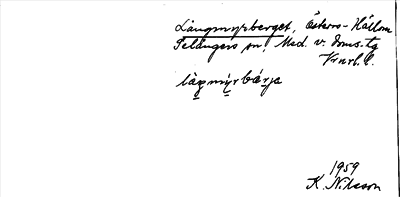 Långmyrberget, Österro-Hållom
Selångers sn. Med. v. doms.tg
l.
låŋmýrbárja
1959
K. Nilsson